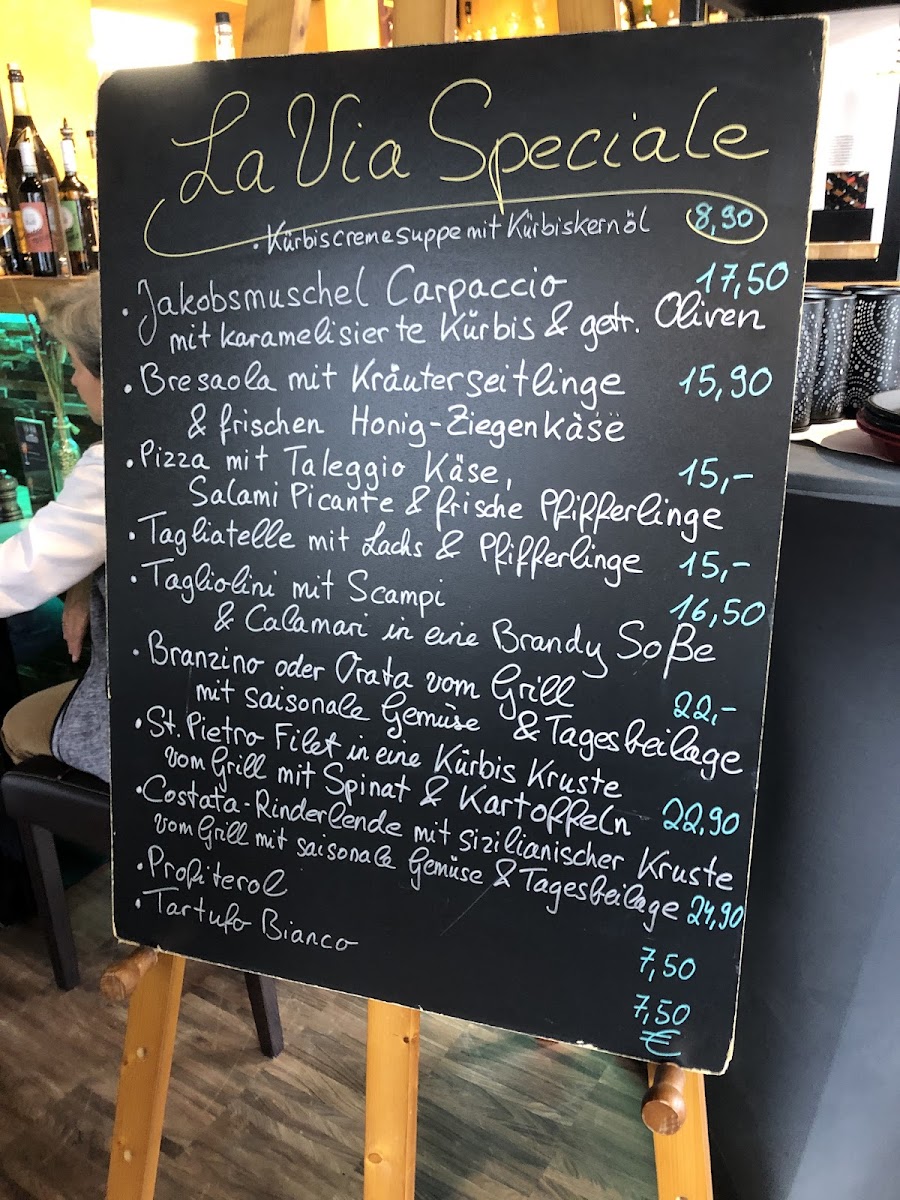 La Via Speciale
• Kürbiscremesuppe mit Kürbiskernöl 8,90
• Jakobsmuschel Carpaccio 17,50
mit karamelisierte Kürbis & getr. Oliven
• Bresaola mit Kräuterseitlinge 15,90
& frischen Honig-Ziegenkäse
• Pizza mit Taleggio Käse, 15,-
Salami Picante & frische Pfifferlinge
• Tagliatelle mit Lachs & Pfifferlinge 15,-
• Tagliolini mit Scampi 16,50
& Calamari in eine Brandy Soße
• Branzino oder Orata vom Grill 22,-
mit saisonale Gemüse & Tagesbeilage
• St. Pietro Filet in eine Kürbis Kruste
vom Grill mit Spinat & Kartoffeln 22,90
• Costata-Rinderlende mit sizilianischer Kruste
vom Grill mit saisonale Gemüse & Tagesbeilage 24,90
• Profiterol 7,50
• Tartufo Bianco 7,50
€